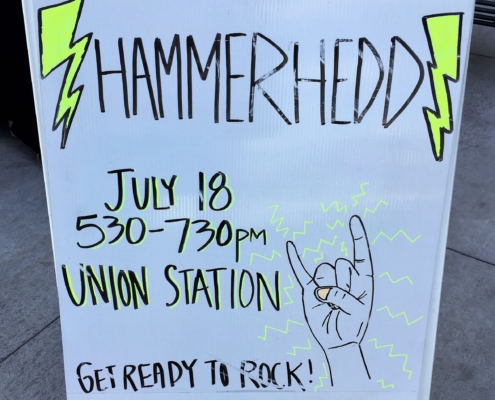 HAMMERHEDD
JULY 18
530-730PM
UNION STATION
GET READY TO ROCK!